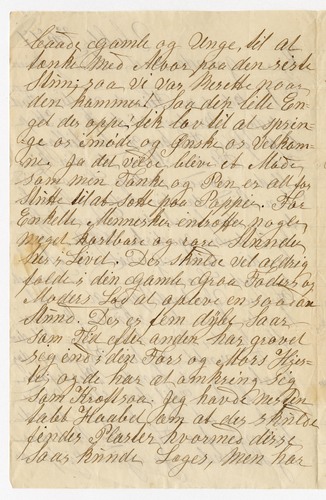 baade Gamle og Unge, til at
tenke med Alvor paa den siste
Stun; saa vi var berette naar
den kommer! Saa den lille En-
gel der oppe fik lov til at sprin-
ge os imøde og ønske os Velkom-
me. Ja det vilde blive et Møde
som min Tanke og Pen er alt for
slette til at sette paa Pappir. Faa
Enkelte Mennesker entroffer nogen
meget kostbare og rare Stunder
her i Livet. Det skulde vel aldrig
falde i den gamle Graa Faders og
Moders Lod at opleve en saadan
Stund. Der er fem dybe Saar
som Tid efter anden har gravet
seg end i den Fars og Mors Hjer-
te, og de har at omkring sig
som Kræft saa jeg havde nesten
tabt Haabet om at der skulde
findes Plaster hvormed disse
Saar kunde Læges, men har